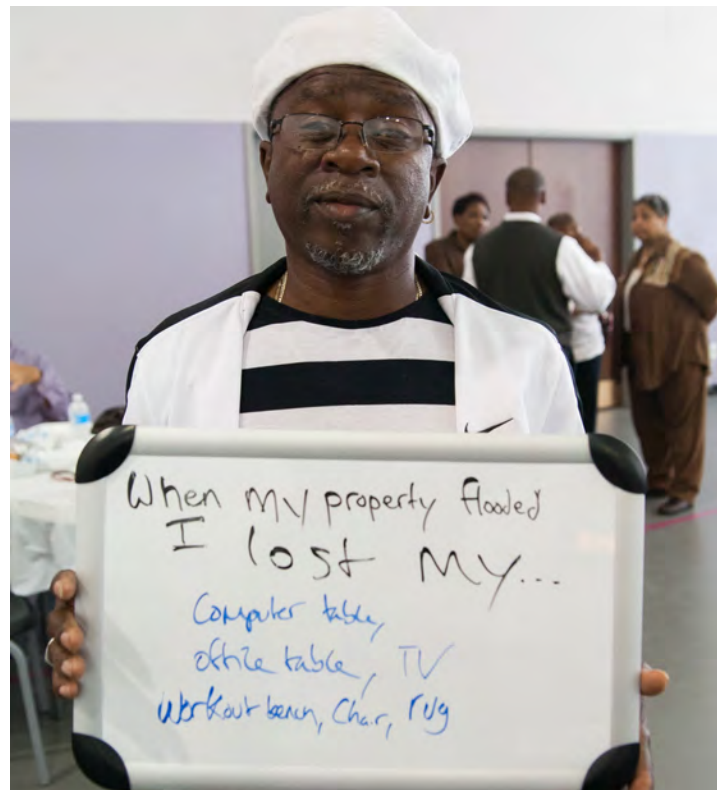 When my property flooded
I lost My...
Computer table,
office table, TV
Workout bench, Chair, rug